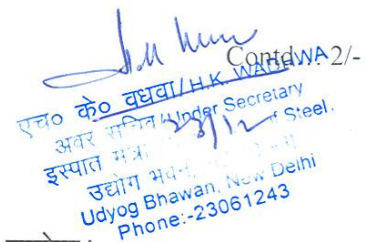 Contd... 2/-
एच० के० वधवा/H.K. WADHWA
अवर सचिव/Under Secretary
इस्पात मंत्रा of Steel.
23/12
उद्योग भवन, New Delhi
Udyog Bhawan, New Delhi
Phone:-23061243